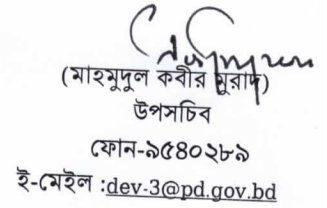 (মাহমুদুল কবীর মুরাদ)
উপসচিব
ফোন-৯৫৪০২৮৯
ই-মেইল :dev-3@pd.gov.bd